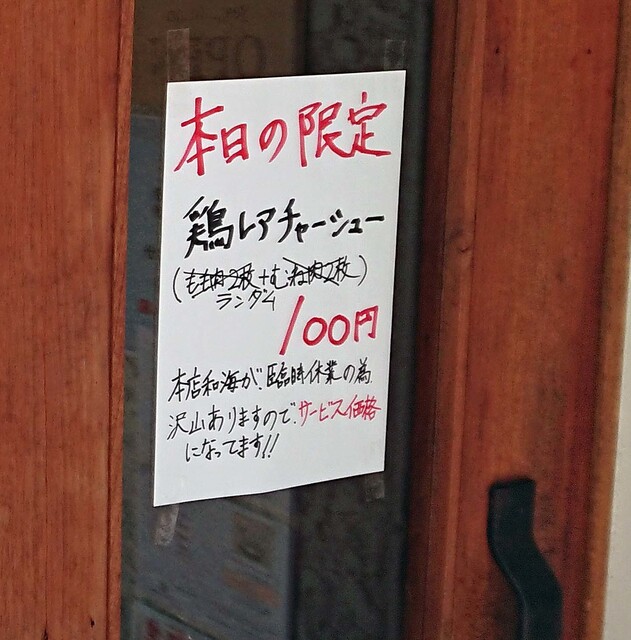 本日の限定
鶏レアチャーシュー
(もも肉2枚+むね肉2枚)
ランダム
100円
本店和海が、臨時休業の為
沢山ありますので、サービス価格
になってます!!